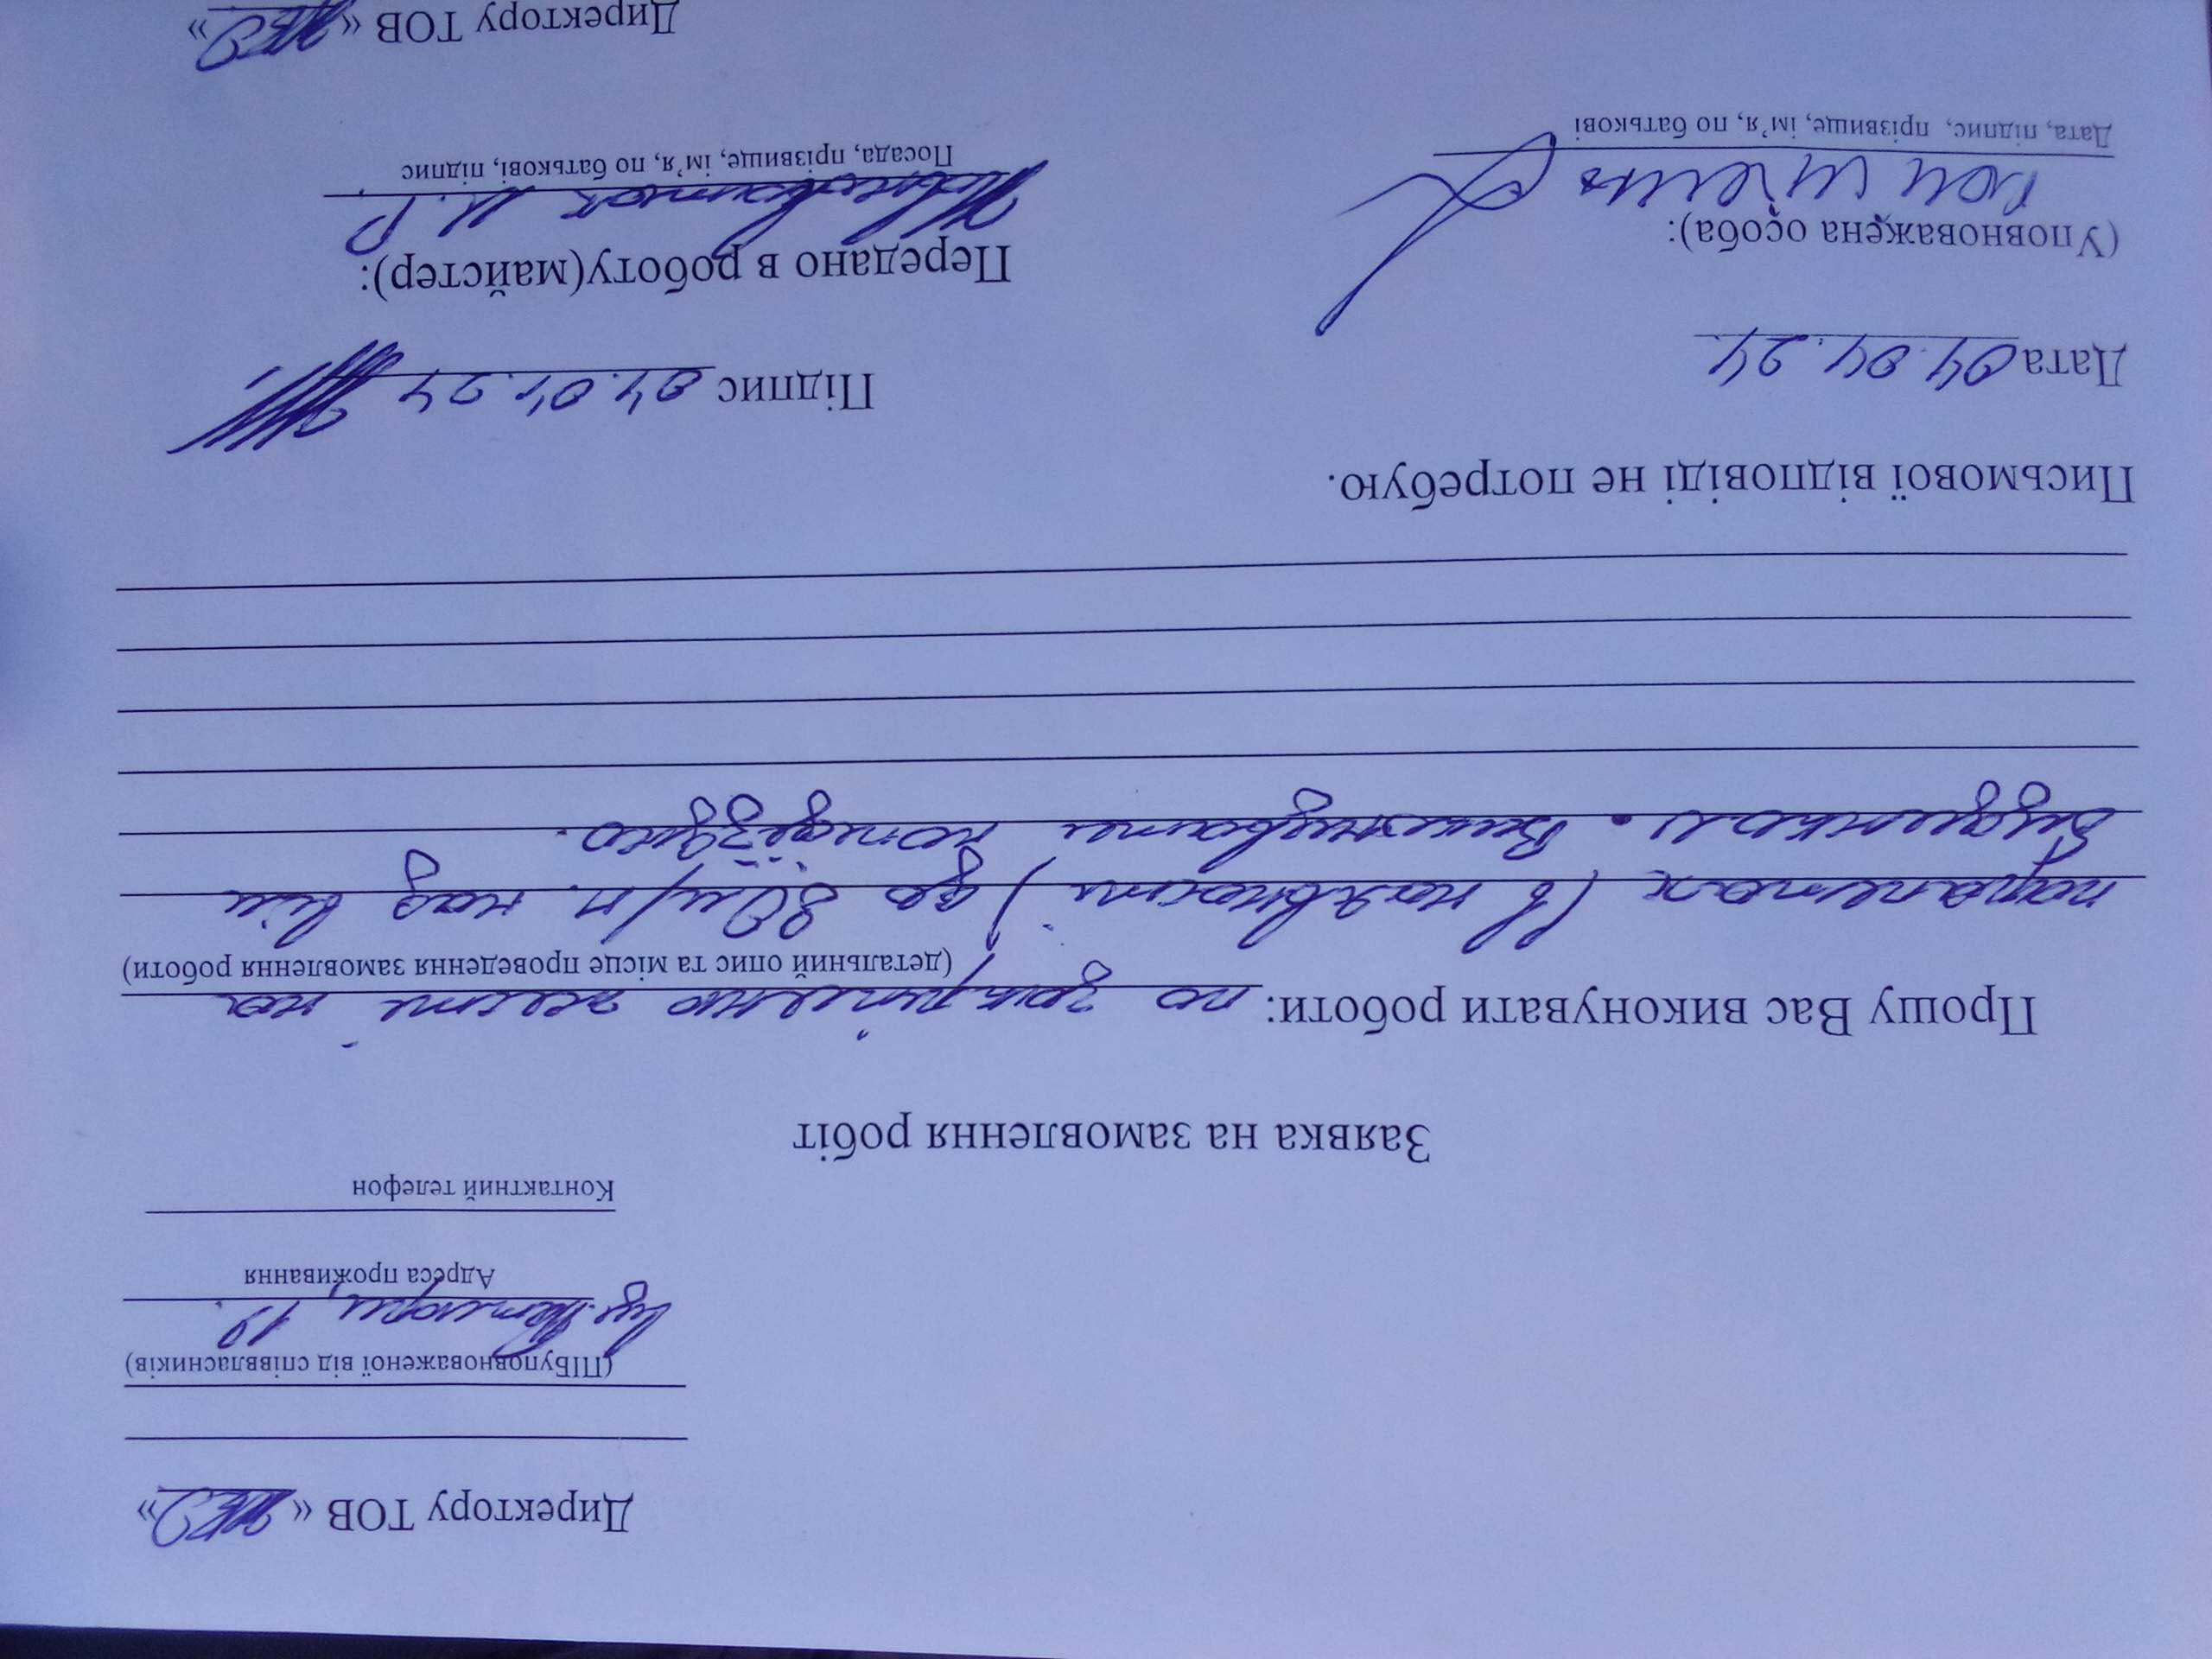 Директору ТОВ « »
(ПІБуповноваженої від співвласників)
вул. 19
Адреса проживання
Контактний телефон
Заявка на замовлення робіт
Прошу Вас виконувати роботи: по закріпленню жесті на
(детальний опис та місце проведення замовлення роботи)
парапетах (в наявності) до 80 м/п. над
будинком. Виконувати
Письмової відповіді не потребую.
Дата 04.04.24.
Підпис 04.04.24
(Уповноважена особа):
Передано в роботу(майстер):
Дата, підпис, прізвище, ім’я, по батькові
Посада, прізвище, ім’я, по батькові, підпис
Директору ТОВ « »